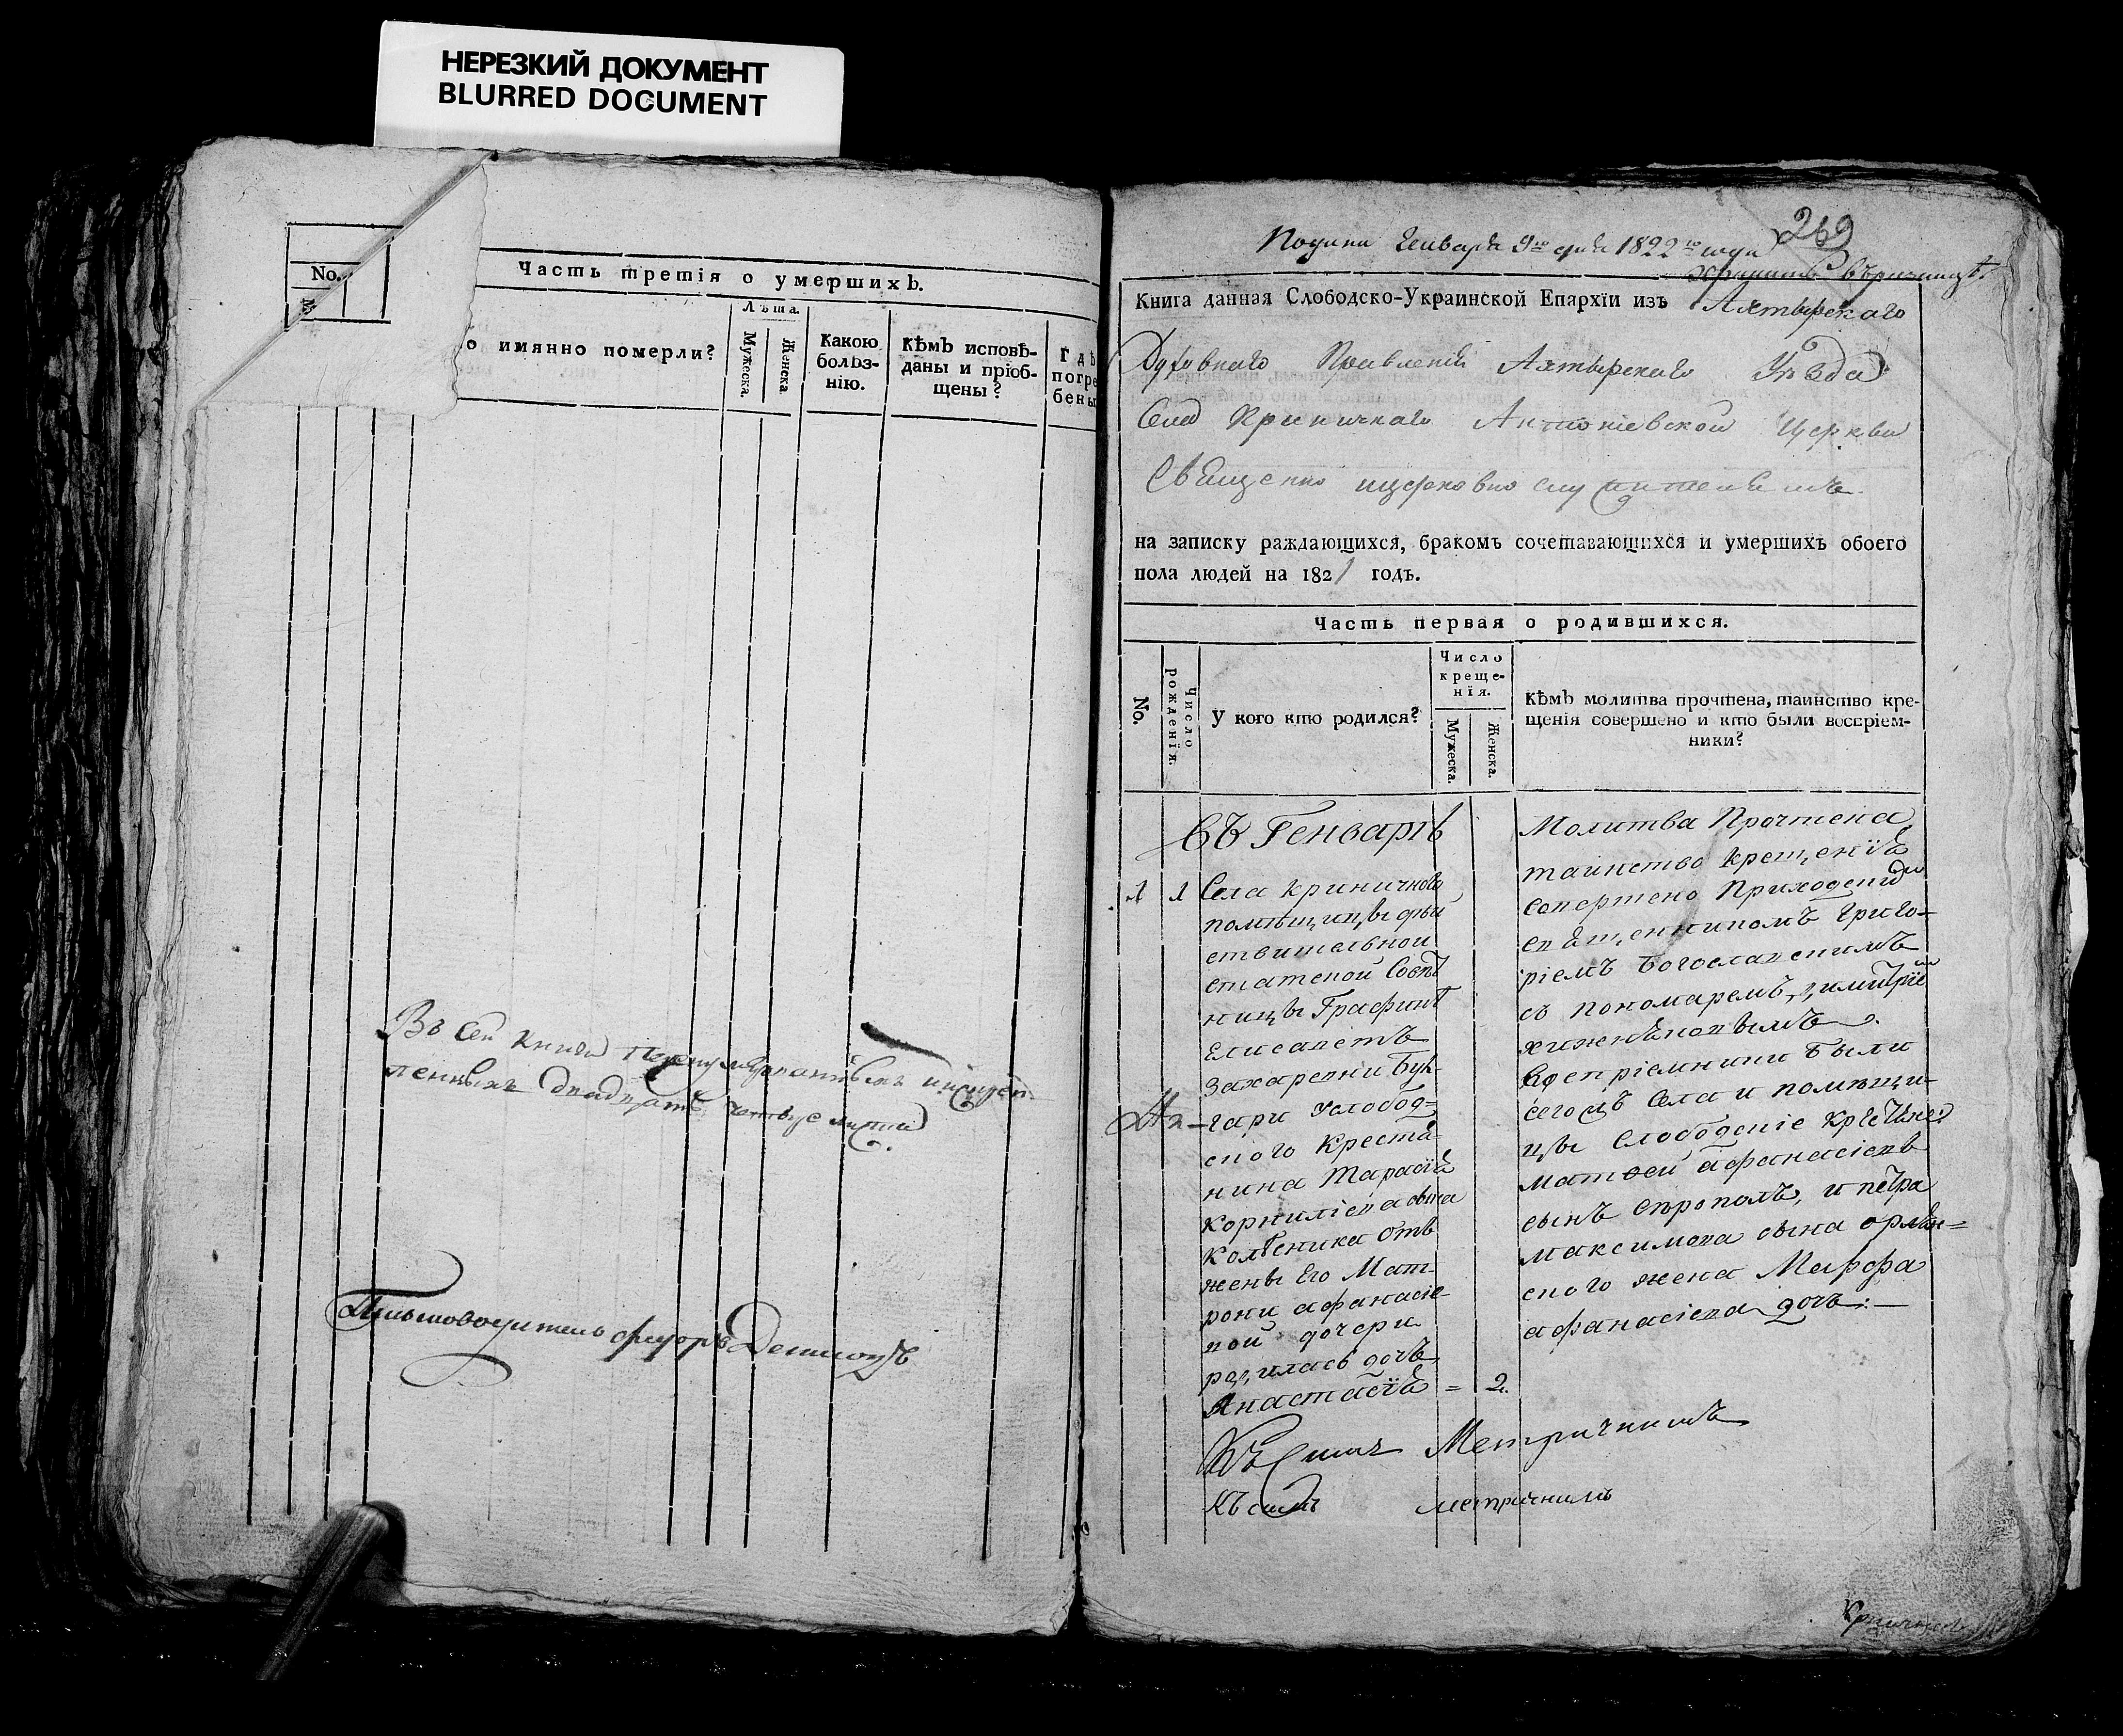 НЕРЕЗКИЙ ДОКУМЕНТ
BLURRED DOCUMENT
No.
Часть третія о умершихъ.
о имянно померли?
Лѣта.
Мужеска.
Женска
Какою
болѣз-
нію.
Кѣмъ исповѣ-
даны и пріоб-
щены?
Гдѣ
погре
бены
Въ сей книги
двадцать четыре листа
Письмоводитель
269
Генваря 9го дня 1822го года
Книга данная Слободско-Украинской Епархїи изъ Ахтырскаго
Духовнаго Правленія Ахтырскаго Уѣзда
Села Криничнаго Антоніевской Церкви
Священно
на записку раждающихся, бракомъ сочетавающихся и умершихъ обоего
пола людей на 1821 годъ.
Часть первая о родившихся.
No.
Число
рожденїя.
У кого кто родился?
Число
креще-
нїя.
Мужеска.
Женска.
Кѣмъ молитва прочтена, таинство кре-
щенія совершено и кто были воспріем-
ники?
Въ Генварѣ
1 1 Села криничного
помѣщицы дѣй
ствительной
статской Совѣт
ницы Графинѣ
Елисаветѣ
Захаревни Бул-
гари услобод=
ского крестя-
нина Тарасія
корниліева сына
колѣсника отъ
жены Его Мат-
рони афанасіе-
вой дочери
родилась дочь
Анастасїя = 2.
Молитва Прочтена
таинство крещенїя
совершено Приходским
священникомъ Григо-
ріемъ Богославскимъ
съ пономаремъ димитріе
хижняковымъ.
Воспріемники были
сегожъ Села и помѣщи-
цы слободскіе
матѳей афанасіевъ
сынъ, и петра
максимова сына
ского жена Марфа
афанасіева дочь:—
Къ симъ Метричнимъ
Къ симъ метричнимъ